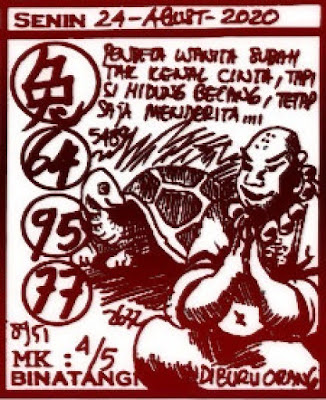 SENIN 24-AGUST-2020
PENDETA WANITA SUDAH
TAK KENAL CINTA, TAPI
SI HIDUNG BELANG, TETAP
SAJA MENDERITA...
兔
64
95
77
8951
2677
MK : 4/5
BINATANG DIBURU ORANG